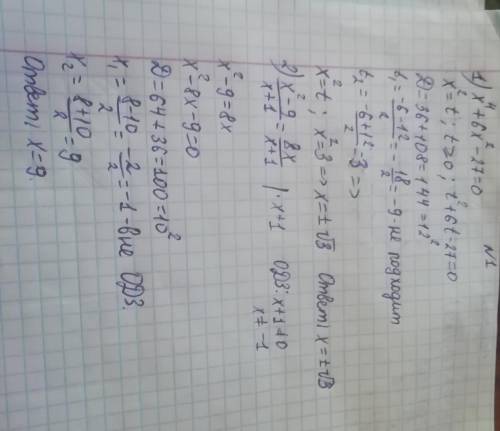 N1
1) x⁴+6x²-27=0
x²=t; t>0; t²+6t-27=0
D=36+108=144=12²
t₁=(-6-12)/2=-18/2=-9-не подходит
t₂=(-6+12)/2=3=>
x²=t; x²=3=>x=±√3 Ответ: x=±√3
2) (x²-9)/(x+1)=8x/(x+1) |·x+1 ОДЗ: x+1≠0
x≠-1
x²-9=8x
x²-8x-9=0
D=64+36=100=10²
x₁=(8-10)/2=-2/2=-1-вне ОДЗ.
x₂=(8+10)/2=9
Ответ: x=9.